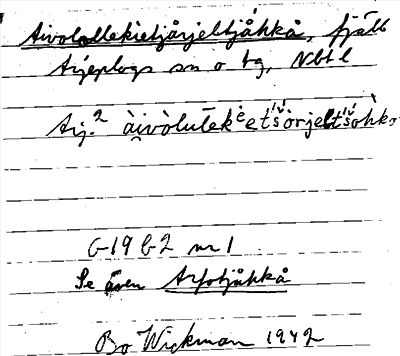 Aivolollekietjårjeltjåhkå, fjäll
Arjeplogs sn o tg, Nbt l
Arj.2
G 19 b 2 nr 1
Se även Arfotjåhkå
Bo Wickman 1942